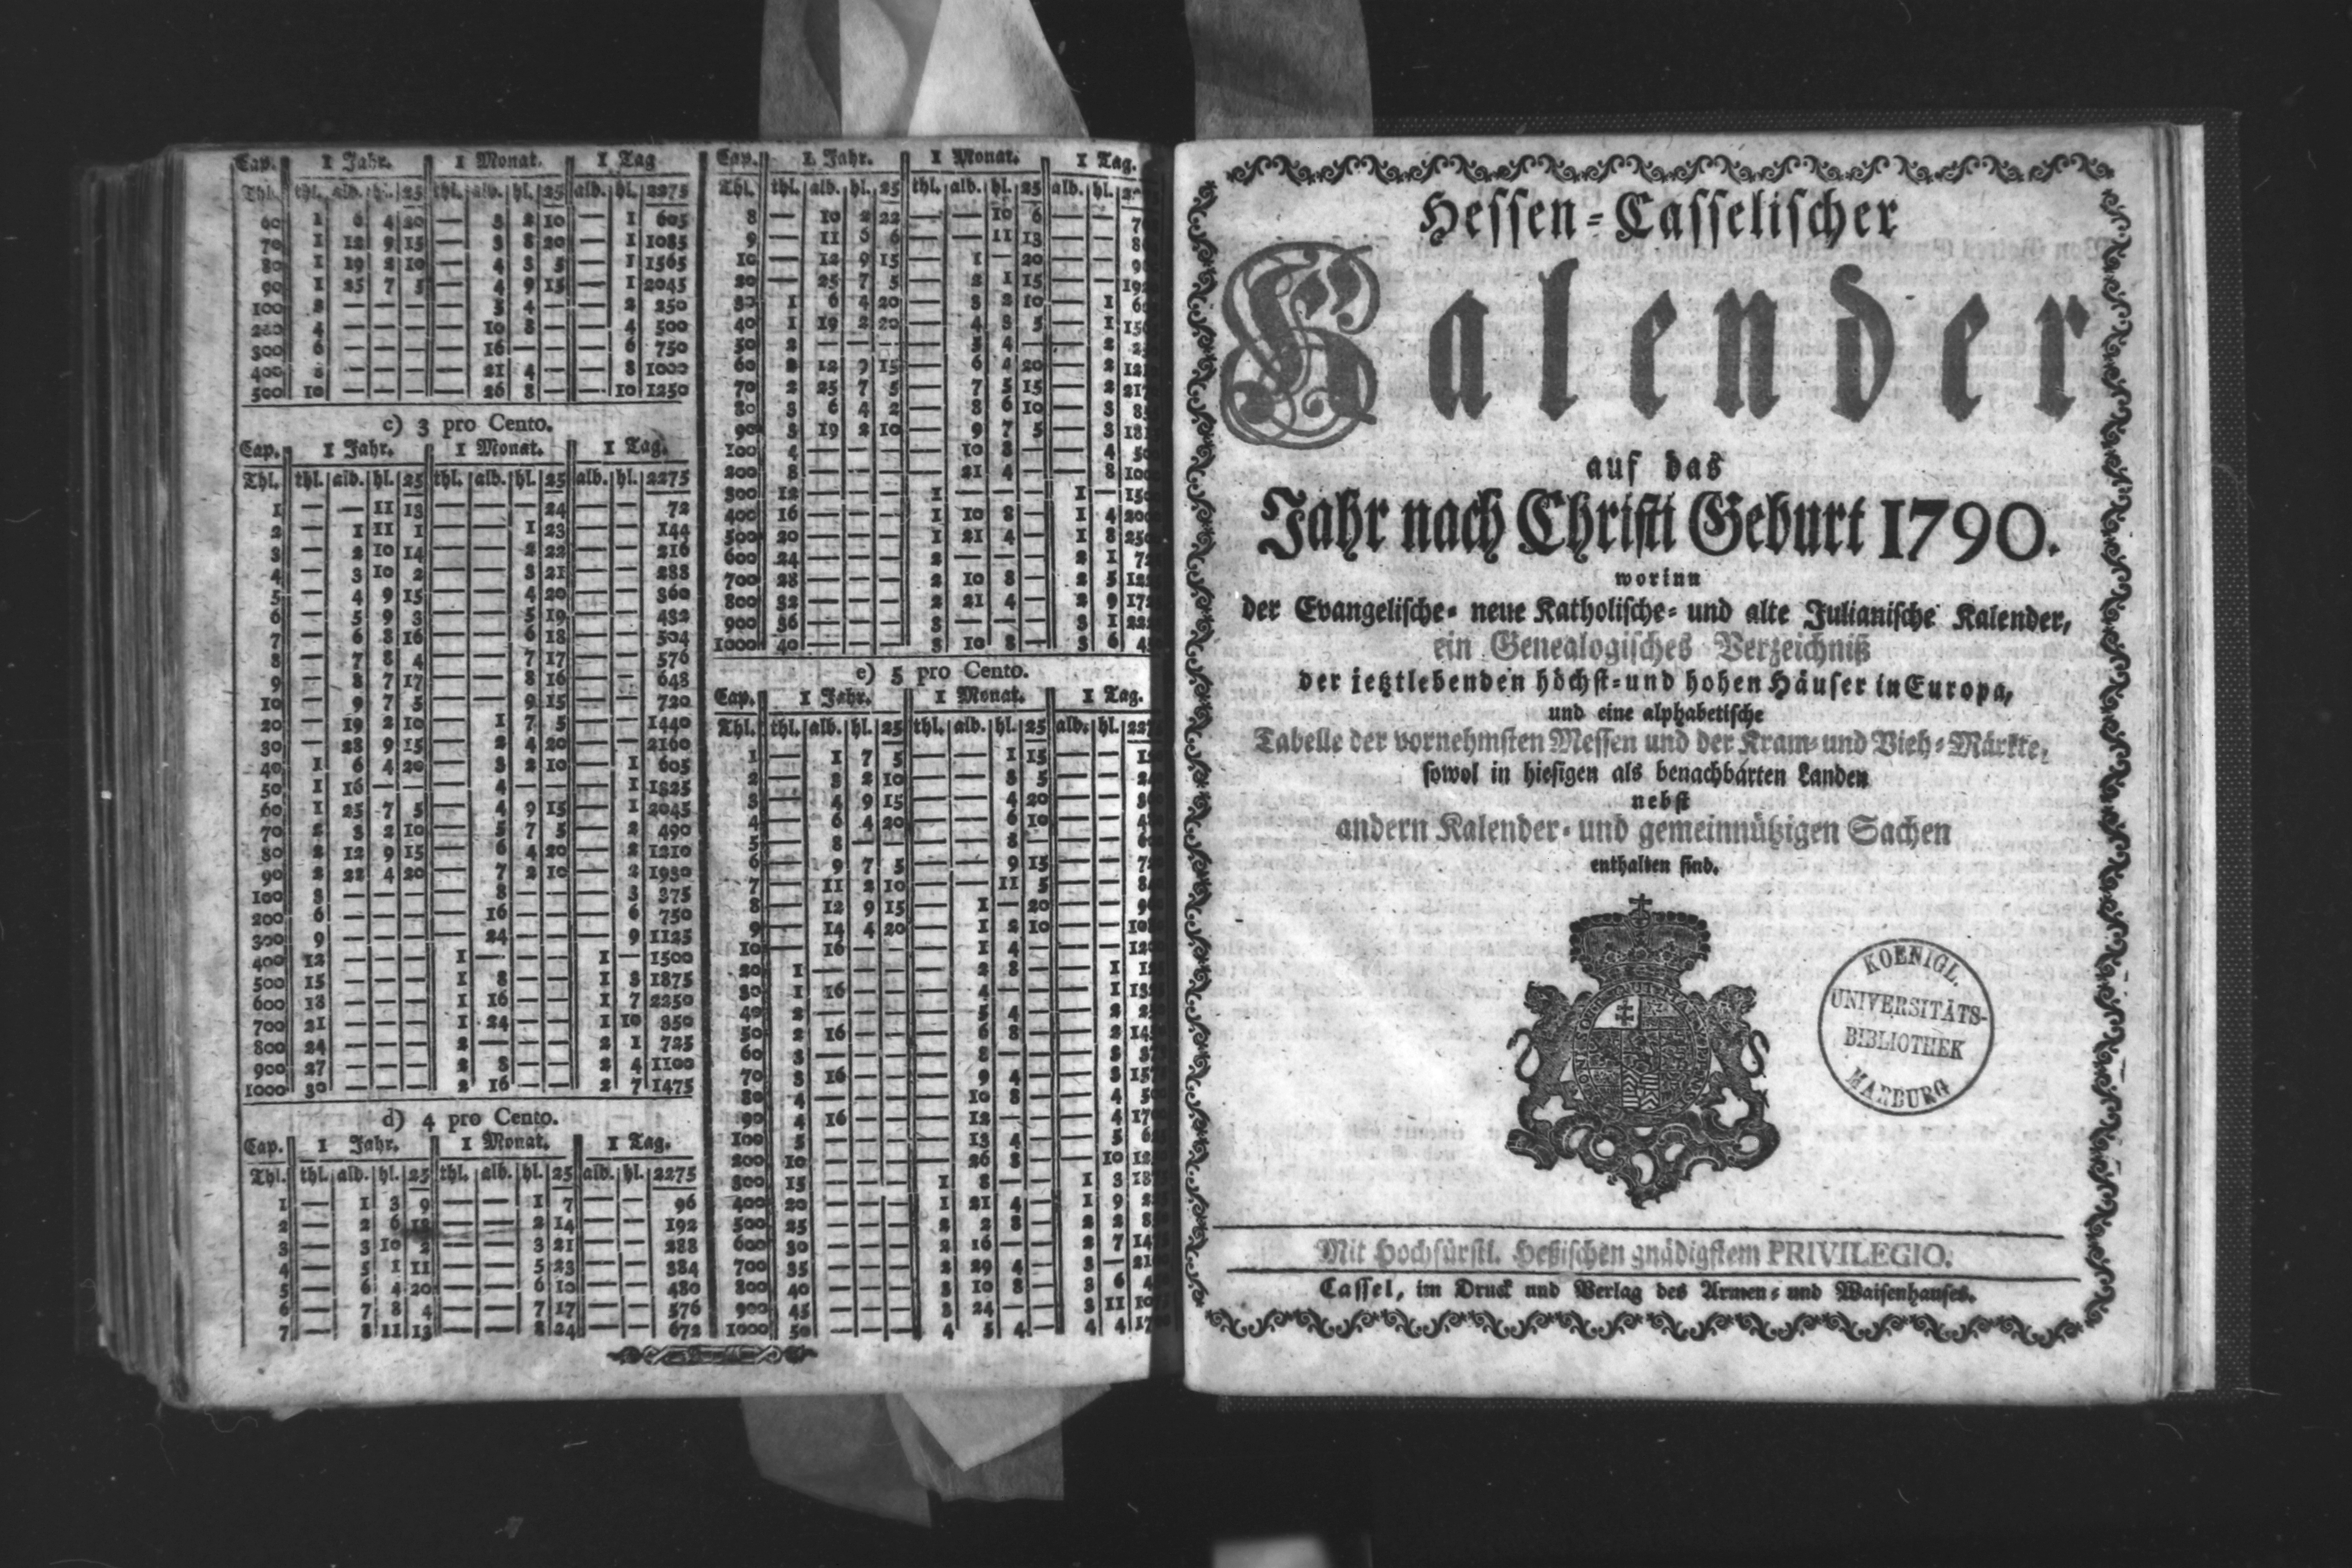 Cap. 1 Jahr. 1 Monat. 1 Tag
Thl. thl. alb. hl. 25 thl. alb. hl. 25 alb. hl. 2275
60 1 6 4 20 — 3 2 10 — 1 605
70 1 12 9 15 — 3 8 20 — 1 1085
80 1 19 2 10 — 4 3 5 — 1 1565
90 1 25 7 5 — 4 9 15 — 1 2045
100 2 — — — — 5 4 — — 2 250
200 4 — — — — 10 8 — — 4 500
300 6 — — — — 16 — — — 6 750
400 8 — — — — 21 4 — — 8 1000
500 10 — — — — 26 8 — — 10 1250
c) 3 pro Cento.
Cap. 1 Jahr. 1 Monat. 1 Tag.
Thl. thl. alb. hl. 25 thl. alb. hl. 25 alb. hl. 2275
1 — — 11 13 — — — 24 — — 72
2 — 1 11 1 — — 1 23 — — 144
3 — 2 10 14 — — 2 22 — — 216
4 — 3 10 2 — — 3 21 — — 288
5 — 4 9 15 — — 4 20 — — 360
6 — 5 9 3 — — 5 19 — — 432
7 — 6 8 16 — — 6 18 — — 504
8 — 7 8 4 — — 7 17 — — 576
9 — 8 7 17 — — 8 16 — — 648
10 — 9 7 5 — — 9 15 — — 720
20 — 19 2 10 — 1 7 5 — — 1440
30 — 28 9 15 — 2 4 20 — — 2160
40 1 6 4 20 — 3 2 10 — 1 605
50 1 16 — — — 4 — — — 1 1325
60 1 25 7 5 — 4 9 15 — 1 2045
70 2 3 2 10 — 5 7 5 — 2 490
80 2 12 9 15 — 6 4 20 — 2 1210
90 2 22 4 20 — 7 2 10 — 2 1930
100 3 — — — — 8 — — — 3 375
200 6 — — — — 16 — — — 6 750
300 9 — — — — 24 — — — 9 1125
400 12 — — — 1 — — — 1 — 1500
500 15 — — — 1 8 — — 1 3 1875
600 18 — — — 1 16 — — 1 7 2250
700 21 — — — 1 24 — — 1 10 350
800 24 — — — 2 — — — 2 1 725
900 27 — — — 2 8 — — 2 4 1100
1000 30 — — — 2 16 — — 2 7 1475
d) 4 pro Cento.
Cap. 1 Jahr. 1 Monat. 1 Tag.
Thl. thl. alb. hl. 25 thl. alb. hl. 25 alb. hl. 2275
1 — 1 3 9 — — 1 7 — — 96
2 — 2 6 18 — — 2 14 — — 192
3 — 3 10 2 — — 3 21 — — 288
4 — 5 1 11 — — 5 23 — — 384
5 — 6 4 20 — — 6 10 — — 480
6 — 7 8 4 — — 7 17 — — 576
7 — 8 11 13 — — 8 24 — — 672
Cap. 1 Jahr. 1 Monat. 1 Tag.
Thl. thl. alb. hl. 25 thl. alb. hl. 25 alb. hl.
8 — 10 2 22 — — 10 6 — —
9 — 11 6 6 — — 11 13 — —
10 — 12 9 15 — 1 — 20 — —
20 — 25 7 5 — 2 1 15 — —
30 1 6 4 20 — 3 2 10 — 1
40 1 19 2 20 — 4 3 5 — 1
50 2 — — — — 5 4 — — 2
60 2 12 9 15 — 6 4 20 — 2
70 2 25 7 5 — 7 5 15 — 2
80 3 6 4 2 — 8 6 10 — 3
90 3 19 2 10 — 9 7 5 — 3
100 4 — — — — 10 8 — — 4
200 8 — — — — 21 4 — — 8
300 12 — — — 1 — — — 1 —
400 16 — — — 1 10 8 — 1 4
500 20 — — — 1 21 4 — 1 8
600 24 — — — 2 — — — 2 1
700 28 — — — 2 10 8 — 2 5
800 32 — — — 2 21 4 — 2 9
900 36 — — — 3 — — — 3 1
1000 40 — — — 3 10 8 — 3 6
e) 5 pro Cento.
Cap. 1 Jahr. 1 Monat. 1 Tag.
Thl. thl. alb. hl. 25 thl. alb. hl. 25 alb. hl.
1 — 1 7 5 — — 1 15 — —
2 — 3 2 10 — — 3 5 — —
3 — 4 9 15 — — 4 20 — —
4 — 6 4 20 — — 6 10 — —
5 — 8 — — — — 8 — — —
6 — 9 7 5 — — 9 15 — —
7 — 11 2 10 — — 11 5 — —
8 — 12 9 15 — 1 — 20 — —
9 — 14 4 20 — 1 2 10 — —
10 — 16 — — — 1 4 — — —
20 1 — — — — 2 8 — — 1
30 1 16 — — — 4 — — — 1
40 2 — — — — 5 4 — — 2
50 2 16 — — — 6 8 — — 2
60 3 — — — — 8 — — — 3
70 3 16 — — — 9 4 — — 3
80 4 — — — — 10 8 — — 4
90 4 16 — — — 12 — — — 4
100 5 — — — — 13 4 — — 5
200 10 — — — — 26 8 — — 10
300 15 — — — 1 8 — — 1 3
400 20 — — — 1 21 4 — 1 9
500 25 — — — 2 2 8 — 2 2
600 30 — — — 2 16 — — 2 7
700 35 — — — 2 29 4 — 3 —
800 40 — — — 3 10 8 — 3 6
900 45 — — — 3 24 — — 3 11
1000 50 — — — 4 5 4 — 4 4
Hessen-Casselischer
Kalender
auf das
Jahr nach Christi Geburt 1790.
worinn
der Evangelische- neue Katholische- und alte Julianische Kalender,
ein Genealogisches Verzeichniß
der ietztlebenden höchst- und hohen Häuser in Europa,
und eine alphabetische
Tabelle der vornehmsten Messen und der Kram- und Vieh-Märkte,
sowol in hiesigen als benachbarten Landen
nebst
andern Kalender- und gemeinnützigen Sachen
enthalten sind.
KOENIGL.
UNIVERSITÄTS-
BIBLIOTHEK
MARBURG
Mit Hochfürstl. Heßischen gnädigstem PRIVILEGIO.
Cassel, im Druck und Verlag des Armen- und Waisenhauses.